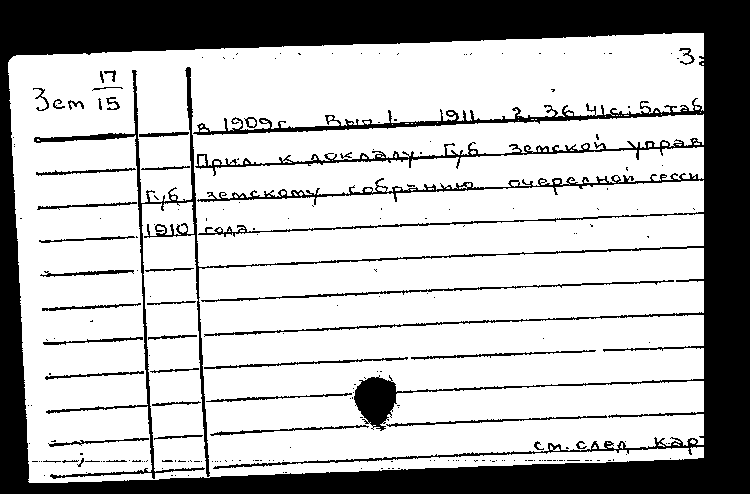 Зем 17/15
в 1909г. Вып. 1. 1911. 2, 36, 41с.; 5л.таб
Прил. к докладу Губ земской управ
Губ земскому собранию очередной сесси
1910 года.
см. след кар